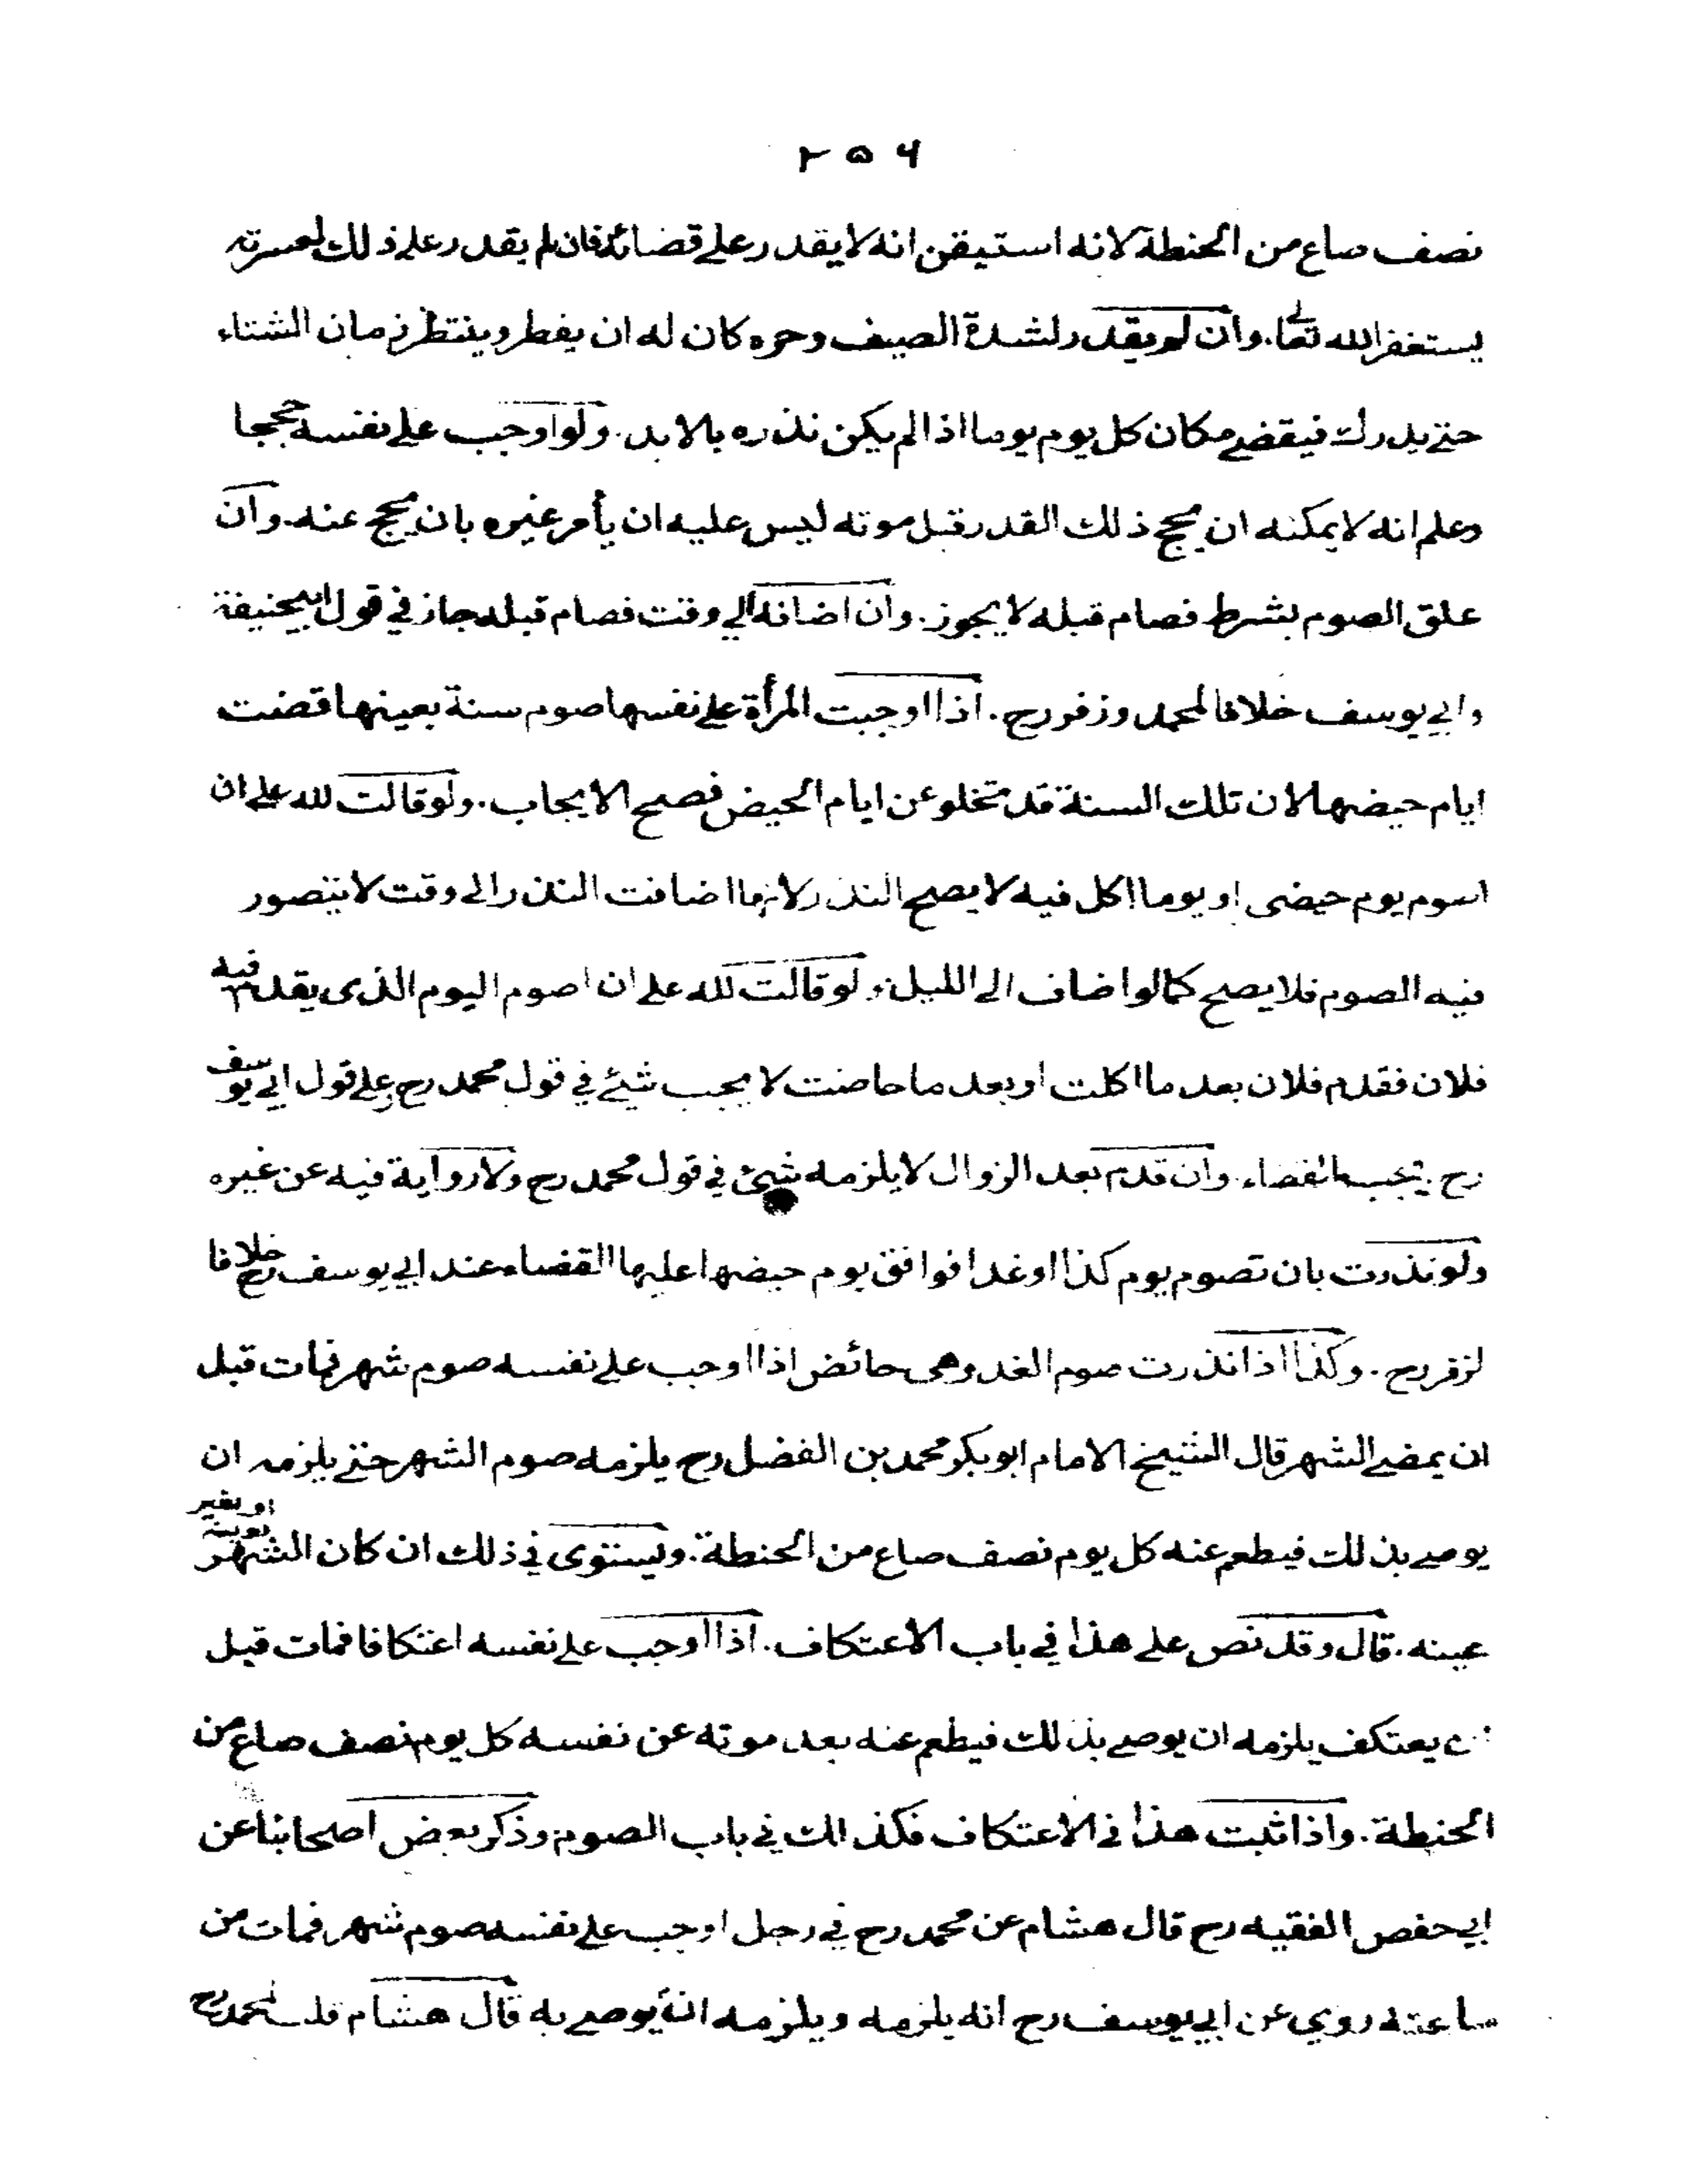 ۲۵۶
نصف صاع من الحنطة لانه استيقن انه لا يقدر على قضائه فان لم يقدر على ذلك لعسرته
يستغفر الله تعا. وان لم يقدر لشدة الصيف وحره كان له ان يفطر وينتظر زمان الشتاء
حتى يدرك فيقضي مكان كل يوم يوما اذا لم يكن نذره بالابد. ولو اوجب على نفسه حججا
وعلم انه لا يمكنه ان يحج ذلك القدر قبل موته ليس عليه ان يأمر غيره بان يحج عنه. وان
علق الصوم بشرط فصام قبله لا يجوز. وان اضافه الى وقت فصام قبله جاز في قول ابي حنيفة
وابي يوسف خلافا لمحمد وزفر رح. اذا اوجبت المرأة على نفسها صوم سنة بعينها قضت
ايام حيضها لان تلك السنة قد تخلو عن ايام الحيض فصح الايجاب. ولو قالت لله على ان
اصوم يوم حيضى او يوما اكل فيه لا يصح النذر لانها اضافت النذر الى وقت لا يتصور
فيه الصوم فلا يصح كما لو اضاف الى الليل. ولو قالت لله على ان اصوم اليوم الذى يقدم فيه
فلان فقدم فلان بعد ما اكلت او بعد ما حاضت لا يجب شيئ في قول محمد رح وعلى قول ابي يوسف
رح يجب القضاء. وان قدم بعد الزوال لا يلزمه شيئ في قول محمد رح ولا رواية فيه عن غيره
ولو نذرت بان تصوم يوم كذا او غدا فوافق يوم حيضها عليها القضاء عند ابي يوسف رح خلافا
لزفر رح. وكذا اذا نذرت صوم الغد وهى حائض اذا اوجب على نفسه صوم شهر فمات قبل
ان يمضي الشهر قال الشيخ الامام ابو بكر محمد بن الفضل رح يلزمه صوم الشهر حتى يلزمه ان
يوصي بذلك فيطعم عنه كل يوم نصف صاع من الحنطة. ويستوى في ذلك ان كان الشهر بعينه او بغير
عينه. قال وقد نص على هذا في باب الاعتكاف. اذا اوجب على نفسه اعتكافا فمات قبل
ان يعتكف يلزمه ان يوصي بذلك فيطعم عنه بعد موته عن نفسه كل يوم نصف صاع من
الحنطة. واذا ثبت هذا في الاعتكاف فكذلك في باب الصوم وذكر بعض اصحابنا عن
ابي حفص الفقيه رح قال هشام عن محمد رح في رجل اوجب على نفسه صوم شهر فمات من
ساعته روي عن ابي يوسف رح انه يلزمه ويلزمه ان يوصي به قال هشام قلت لمحمد رح